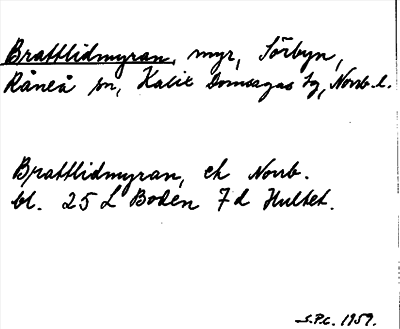 Brattlidmyran, myr, Sörbyn,
Råneå sn, Kalix Domsagas tg, Norrb. l.
Brattlidmyran, ek Norrb.
bl. 25 L Boden 7d Hultet.
S.P.C. 1959.